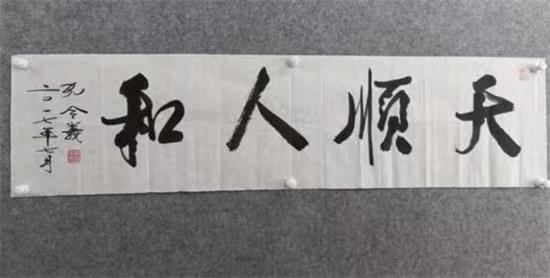 天順人和
孔令義
二〇一七年七月